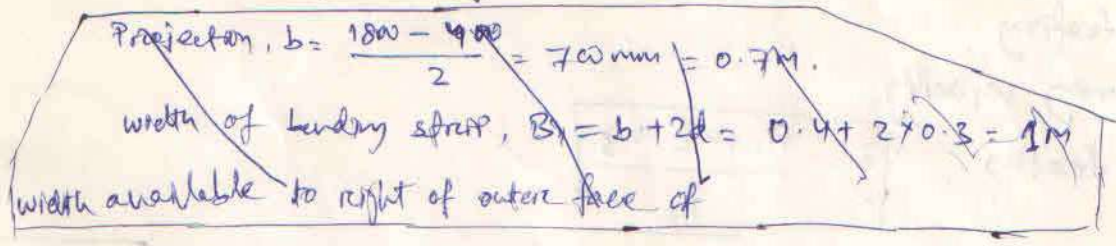 Projection, b = (1800 - 400)/2 = 700 mm = 0.7M.
width of bending strip, B1 = b + 2d = 0.4 + 2×0.3 = 1M
width available to right of outere face of